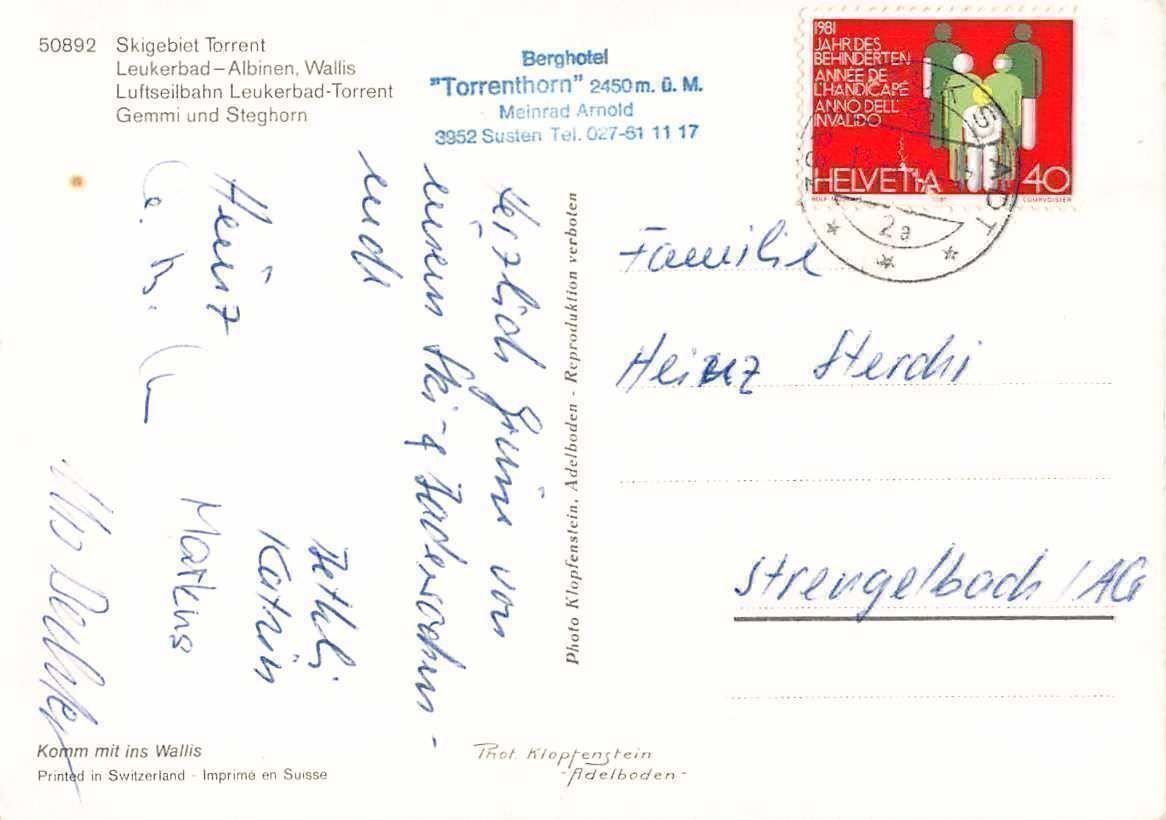 50892 Skigebiet Torrent
Leukerbad–Albinen, Wallis
Luftseilbahn Leukerbad-Torrent
Gemmi und Steghorn
Berghotel
"Torrenthorn" 2450 m. ü. M.
Meinrad Arnold
3952 Susten Tel. 027-61 11 17
1981
JAHR DES
BEHINDERTEN
ANNÉE DE
L'HANDICAPÉ
ANNO DELL'
INVALIDO
HELVETIA 40
COURVOISIER
2a
Herzlich Grüsse von
unserm Ski-
Heinz
Kathrin
Markus
Photo Klopfenstein, Adelboden - Reproduktion verboten
Familie
Heinz Sterchi
Strengelbach/AG
Komm mit ins Wallis
Printed in Switzerland - Imprimé en Suisse
Phot. Klopfenstein
-Adelboden-